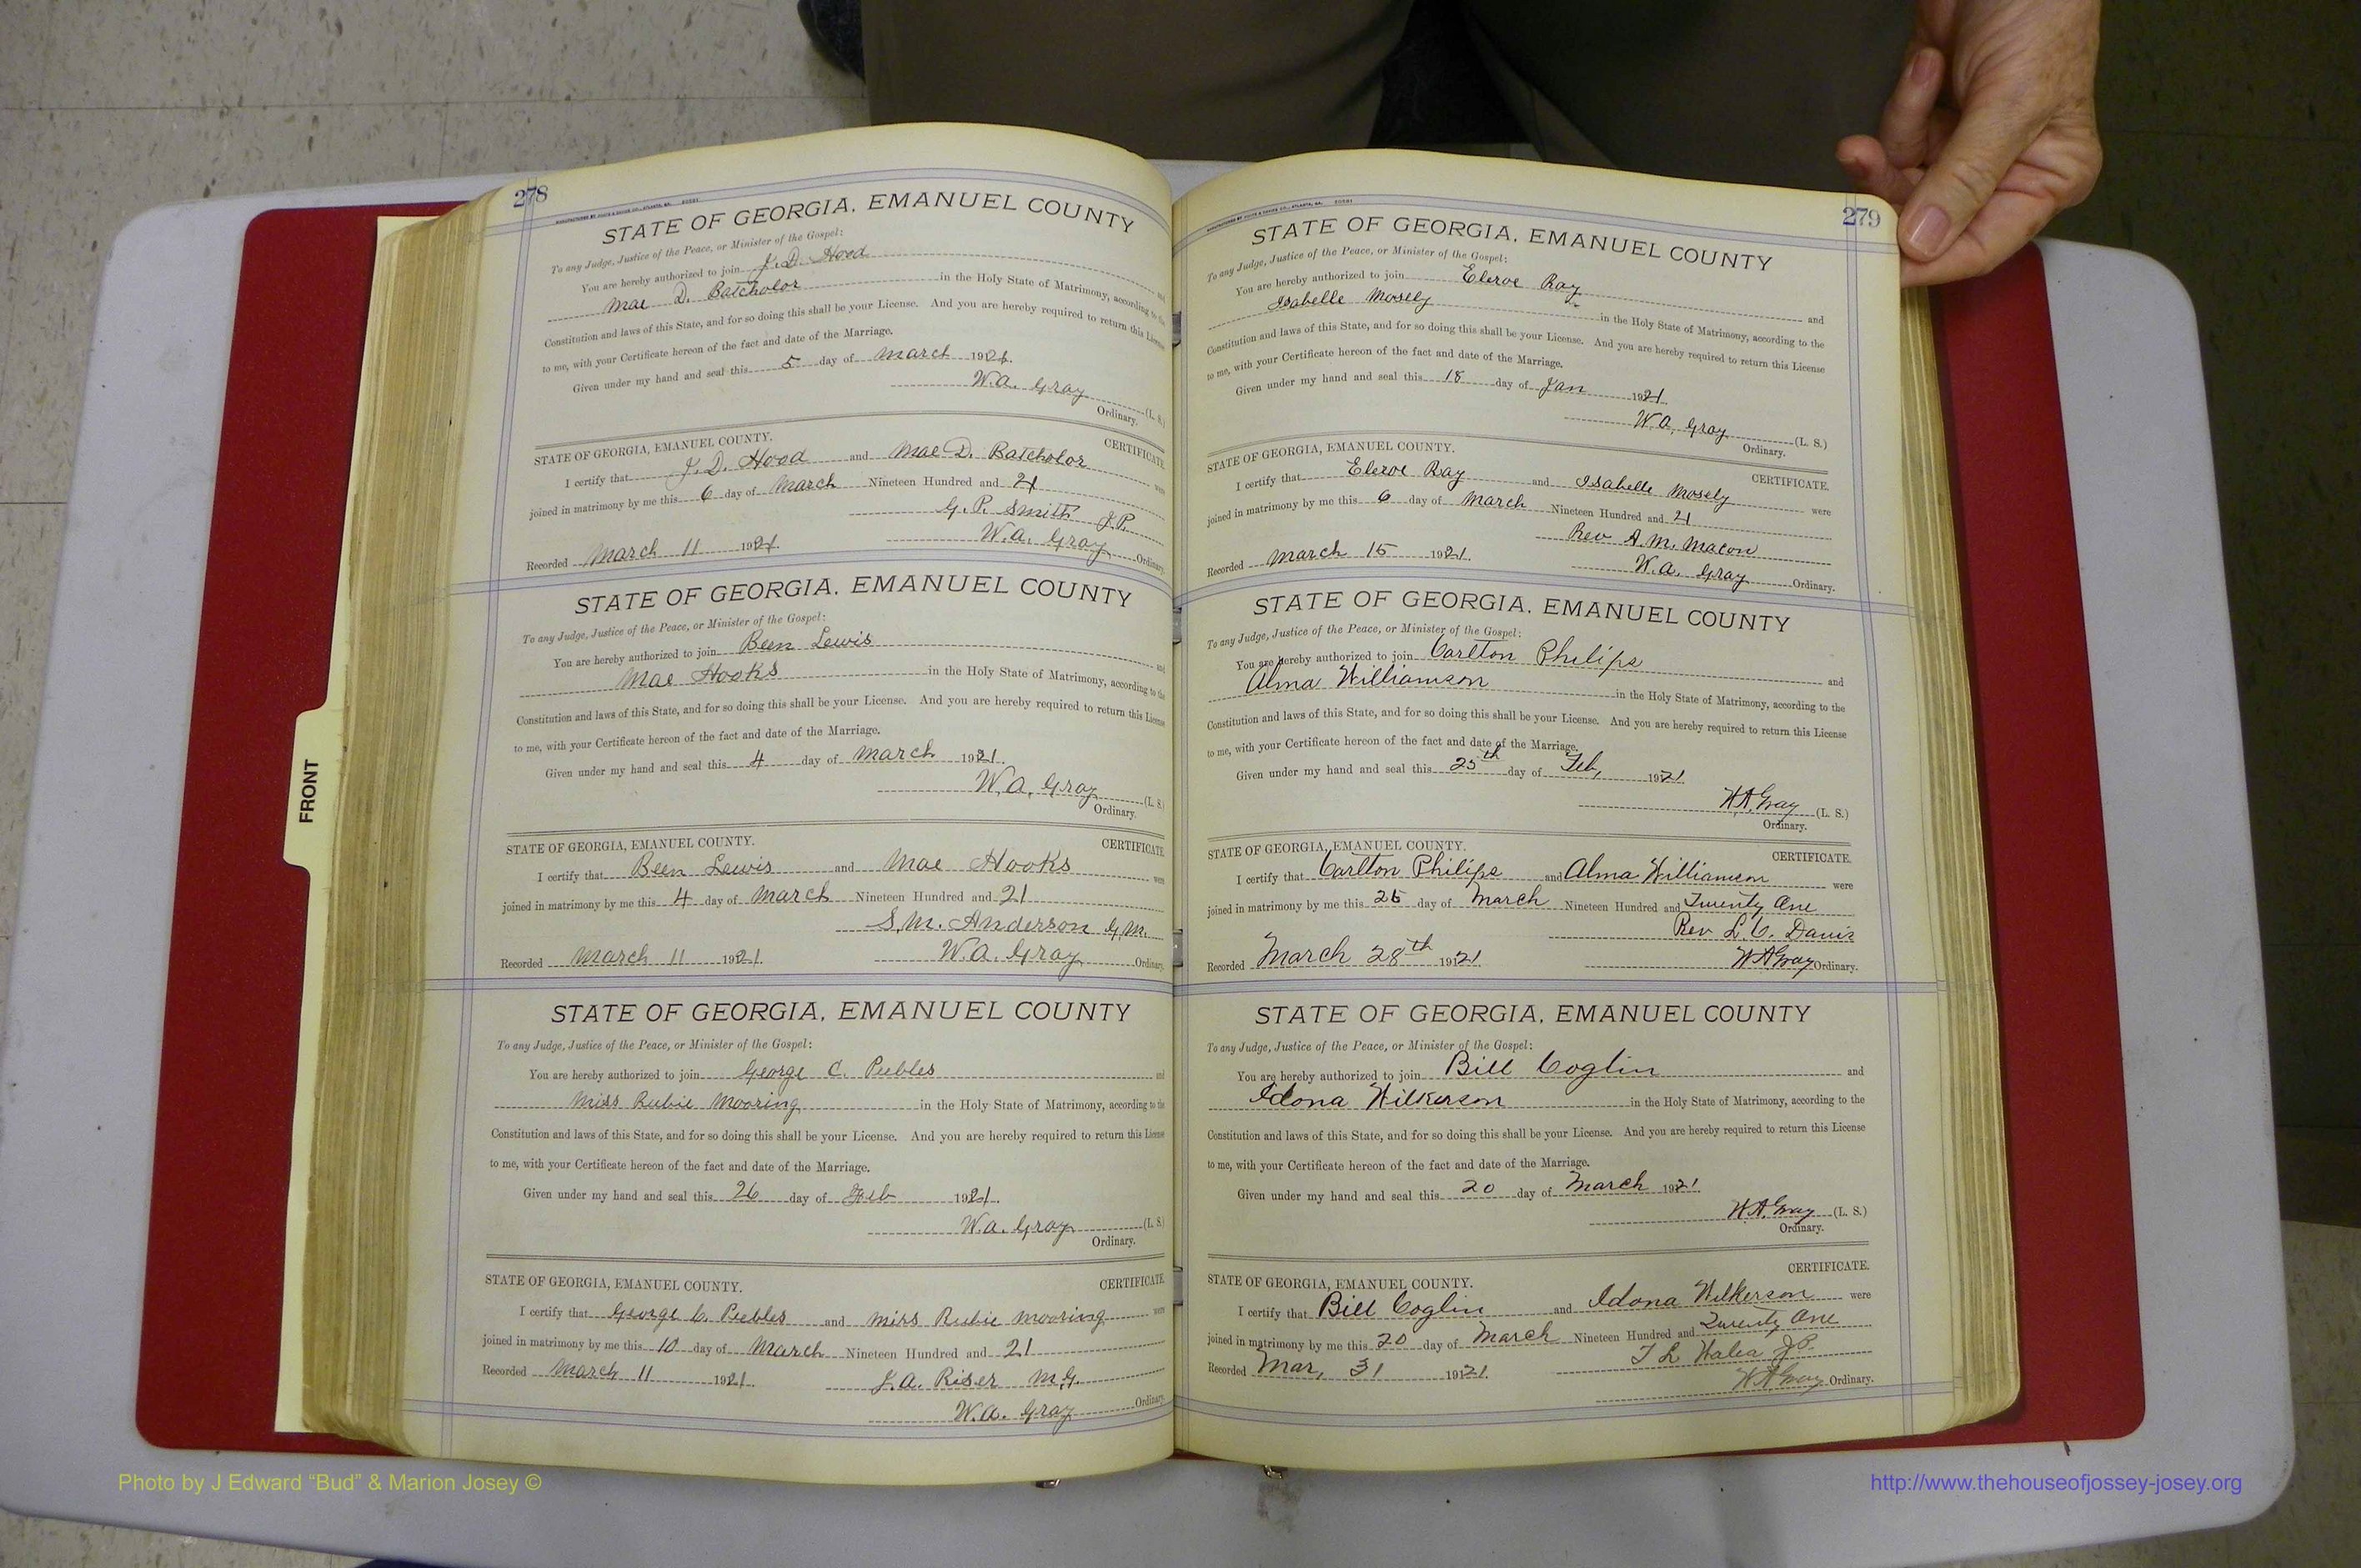 278
STATE OF GEORGIA, EMANUEL COUNTY
To any Judge, Justice of the Peace, or Minister of the Gospel:
You are hereby authorized to join J. D. Hood and
Mae D. Batcholor in the Holy State of Matrimony, according to the
Constitution and laws of this State, and for so doing this shall be your License. And you are hereby required to return this License
to me, with your Certificate hereon of the fact and date of the Marriage.
Given under my hand and seal this 5 day of March 1921.
W.A. Gray (L. S.)
Ordinary.
STATE OF GEORGIA, EMANUEL COUNTY. CERTIFICATE
I certify that J. D. Hood and Mae D. Batcholor were
joined in matrimony by me this 6 day of March Nineteen Hundred and 21
G. P. Smith J.P.
Recorded March 11 1921. W.A. Gray Ordinary
STATE OF GEORGIA, EMANUEL COUNTY
To any Judge, Justice of the Peace, or Minister of the Gospel:
You are hereby authorized to join Been Lewis and
Mae Hooks in the Holy State of Matrimony, according to the
Constitution and laws of this State, and for so doing this shall be your License. And you are hereby required to return this License
to me, with your Certificate hereon of the fact and date of the Marriage.
Given under my hand and seal this 4 day of March 1921.
W.A. Gray (L. S.)
Ordinary.
STATE OF GEORGIA, EMANUEL COUNTY. CERTIFICATE
I certify that Been Lewis and Mae Hooks were
joined in matrimony by me this 4 day of March Nineteen Hundred and 21
S.M. Anderson G.M.
Recorded March 11 1921. W.A. Gray Ordinary
STATE OF GEORGIA, EMANUEL COUNTY
To any Judge, Justice of the Peace, or Minister of the Gospel:
You are hereby authorized to join George C. Peebles and
Miss Rubie Mooring in the Holy State of Matrimony, according to the
Constitution and laws of this State, and for so doing this shall be your License. And you are hereby required to return this License
to me, with your Certificate hereon of the fact and date of the Marriage.
Given under my hand and seal this 26 day of Feb 1921.
W.A. Gray (L. S)
Ordinary.
STATE OF GEORGIA, EMANUEL COUNTY. CERTIFICATE
I certify that George C. Peebles and Miss Rubie Mooring were
joined in matrimony by me this 10 day of March Nineteen Hundred and 21
Recorded March 11 1921. L.A. Riser M.G.
W.A. Gray Ordinary
279
STATE OF GEORGIA, EMANUEL COUNTY
To any Judge, Justice of the Peace, or Minister of the Gospel:
You are hereby authorized to join Eleroe Ray and
Isabelle Mosely in the Holy State of Matrimony, according to the
Constitution and laws of this State, and for so doing this shall be your License. And you are hereby required to return this License
to me, with your Certificate hereon of the fact and date of the Marriage.
Given under my hand and seal this 18 day of Jan 1921.
W.A. Gray (L. S.)
Ordinary.
STATE OF GEORGIA, EMANUEL COUNTY. CERTIFICATE.
I certify that Eleroe Ray and Isabelle Mosely were
joined in matrimony by me this 6 day of March Nineteen Hundred and 21
Rev A.M. Macon
Recorded March 15 1921. W.A. Gray Ordinary.
STATE OF GEORGIA, EMANUEL COUNTY
To any Judge, Justice of the Peace, or Minister of the Gospel:
You are hereby authorized to join Carlton Philips and
Alma Williamson in the Holy State of Matrimony, according to the
Constitution and laws of this State, and for so doing this shall be your License. And you are hereby required to return this License
to me, with your Certificate hereon of the fact and date of the Marriage.
Given under my hand and seal this 25th day of Feb, 1921
W.A. Gray (L. S.)
Ordinary.
STATE OF GEORGIA, EMANUEL COUNTY. CERTIFICATE.
I certify that Carlton Philips and Alma Williamson were
joined in matrimony by me this 26 day of March Nineteen Hundred and Twenty One
Rev L.C. Davis
Recorded March 28th 1921 W.A. Gray Ordinary.
STATE OF GEORGIA, EMANUEL COUNTY
To any Judge, Justice of the Peace, or Minister of the Gospel:
You are hereby authorized to join Bill Coglin and
Idona Wilkerson in the Holy State of Matrimony, according to the
Constitution and laws of this State, and for so doing this shall be your License. And you are hereby required to return this License
to me, with your Certificate hereon of the fact and date of the Marriage.
Given under my hand and seal this 20 day of March 1921.
W.A. Gray (L. S.)
Ordinary.
STATE OF GEORGIA, EMANUEL COUNTY. CERTIFICATE.
I certify that Bill Coglin and Idona Wilkerson were
joined in matrimony by me this 20 day of March Nineteen Hundred and Twenty One
Recorded Mar, 31 1921. J.P.
W.A. Gray Ordinary.
FRONT
Photo by J Edward “Bud” & Marion Josey ©
http://www.thehouseofjossey-josey.org